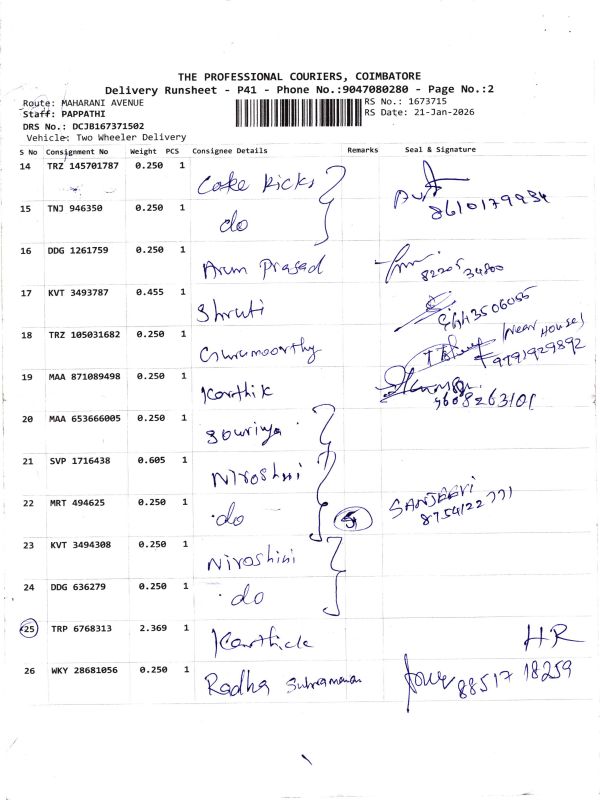 THE PROFESSIONAL COURIERS, COIMBATORE
Delivery Runsheet - P41 - Phone No.:9047080280 - Page No.:2
Route: MAHARANI AVENUE
RS No.: 1673715
Staff: PAPPATHI
RS Date: 21-Jan-2026
DRS No.: DCJB167371502
Vehicle: Two Wheeler Delivery
S No Consignment No Weight PCS Consignee Details Remarks Seal & Signature
14 TRZ 145701787 0.250 1 Cake Ricks
8610179934
15 TNJ 946350 0.250 1 do
16 DDG 1261759 0.250 1 Arun Prasad
82205 34800
17 KVT 3493787 0.455 1 Shruti
18 TRZ 105031682 0.250 1 Gurumoorthy
(Near House)
9791929892
19 MAA 871089498 0.250 1 Karthik
9608263101
20 MAA 653666005 0.250 1 Souriya
21 SVP 1716438 0.605 1 Niroshini
22 MRT 494625 0.250 1 do 5 SANJEEVI
8754122771
23 KVT 3494308 0.250 1 Niroshini
24 DDG 636279 0.250 1 do
25 TRP 6768313 2.369 1 Karthick HR
26 WKY 28681056 0.250 1 Radha Subramanian
88517 18259